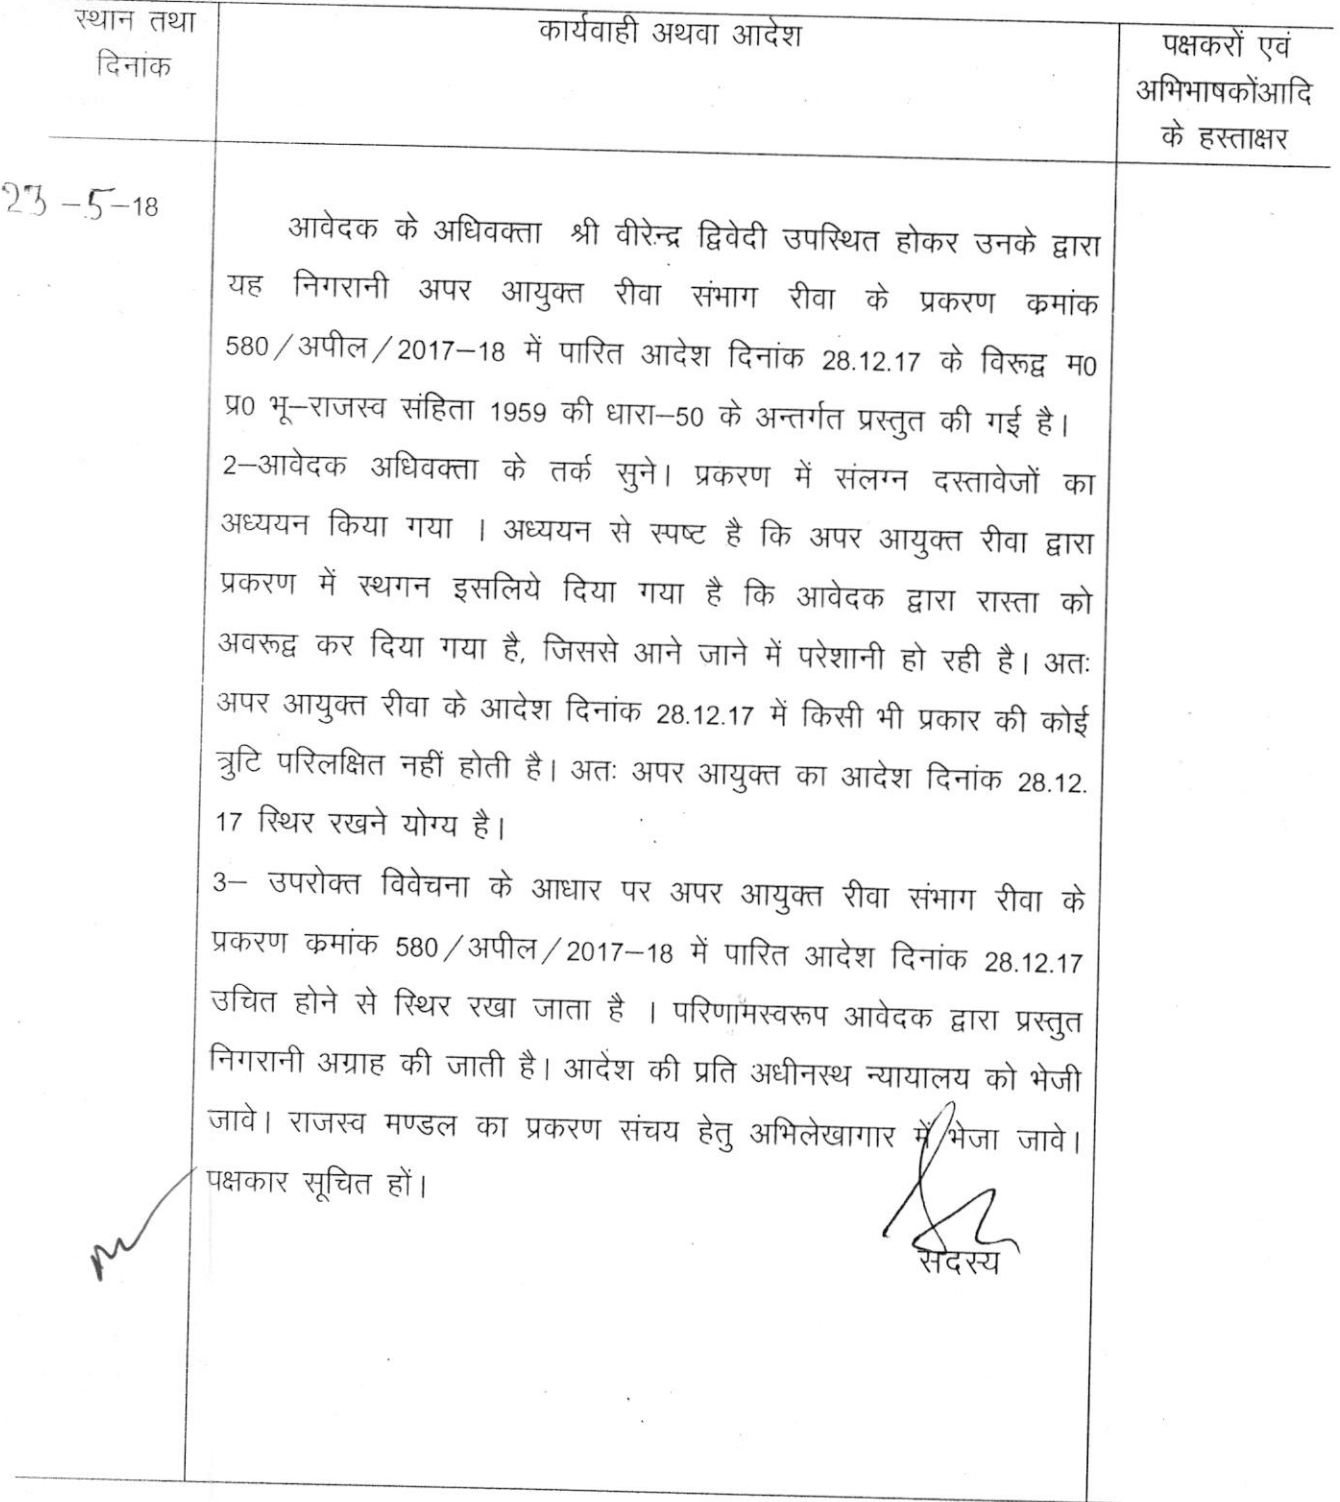 स्थान तथा
दिनांक
कार्यवाही अथवा आदेश
पक्षकरों एवं
अभिभाषकोंआदि
के हस्ताक्षर
23-5-18
आवेदक के अधिवक्ता श्री वीरेन्द्र द्विवेदी उपस्थित होकर उनके द्वारा
यह निगरानी अपर आयुक्त रीवा संभाग रीवा के प्रकरण कमांक
580/अपील/2017-18 में पारित आदेश दिनांक 28.12.17 के विरूद्व म0
प्र0 भू-राजस्व संहिता 1959 की धारा-50 के अन्तर्गत प्रस्तुत की गई है।
2-आवेदक अधिवक्ता के तर्क सुने। प्रकरण में संलग्न दस्तावेजों का
अध्ययन किया गया । अध्ययन से स्पष्ट है कि अपर आयुक्त रीवा द्वारा
प्रकरण में स्थगन इसलिये दिया गया है कि आवेदक द्वारा रास्ता को
अवरूद्व कर दिया गया है, जिससे आने जाने में परेशानी हो रही है। अतः
अपर आयुक्त रीवा के आदेश दिनांक 28.12.17 में किसी भी प्रकार की कोई
त्रुटि परिलक्षित नहीं होती है। अतः अपर आयुक्त का आदेश दिनांक 28.12.
17 स्थिर रखने योग्य है।
3- उपरोक्त विवेचना के आधार पर अपर आयुक्त रीवा संभाग रीवा के
प्रकरण कमांक 580/अपील/2017-18 में पारित आदेश दिनांक 28.12.17
उचित होने से स्थिर रखा जाता है । परिणामस्वरूप आवेदक द्वारा प्रस्तुत
निगरानी अग्राह की जाती है। आदेश की प्रति अधीनस्थ न्यायालय को भेजी
जावे। राजस्व मण्डल का प्रकरण संचय हेतु अभिलेखागार में भेजा जावे।
पक्षकार सूचित हों।
सदस्य